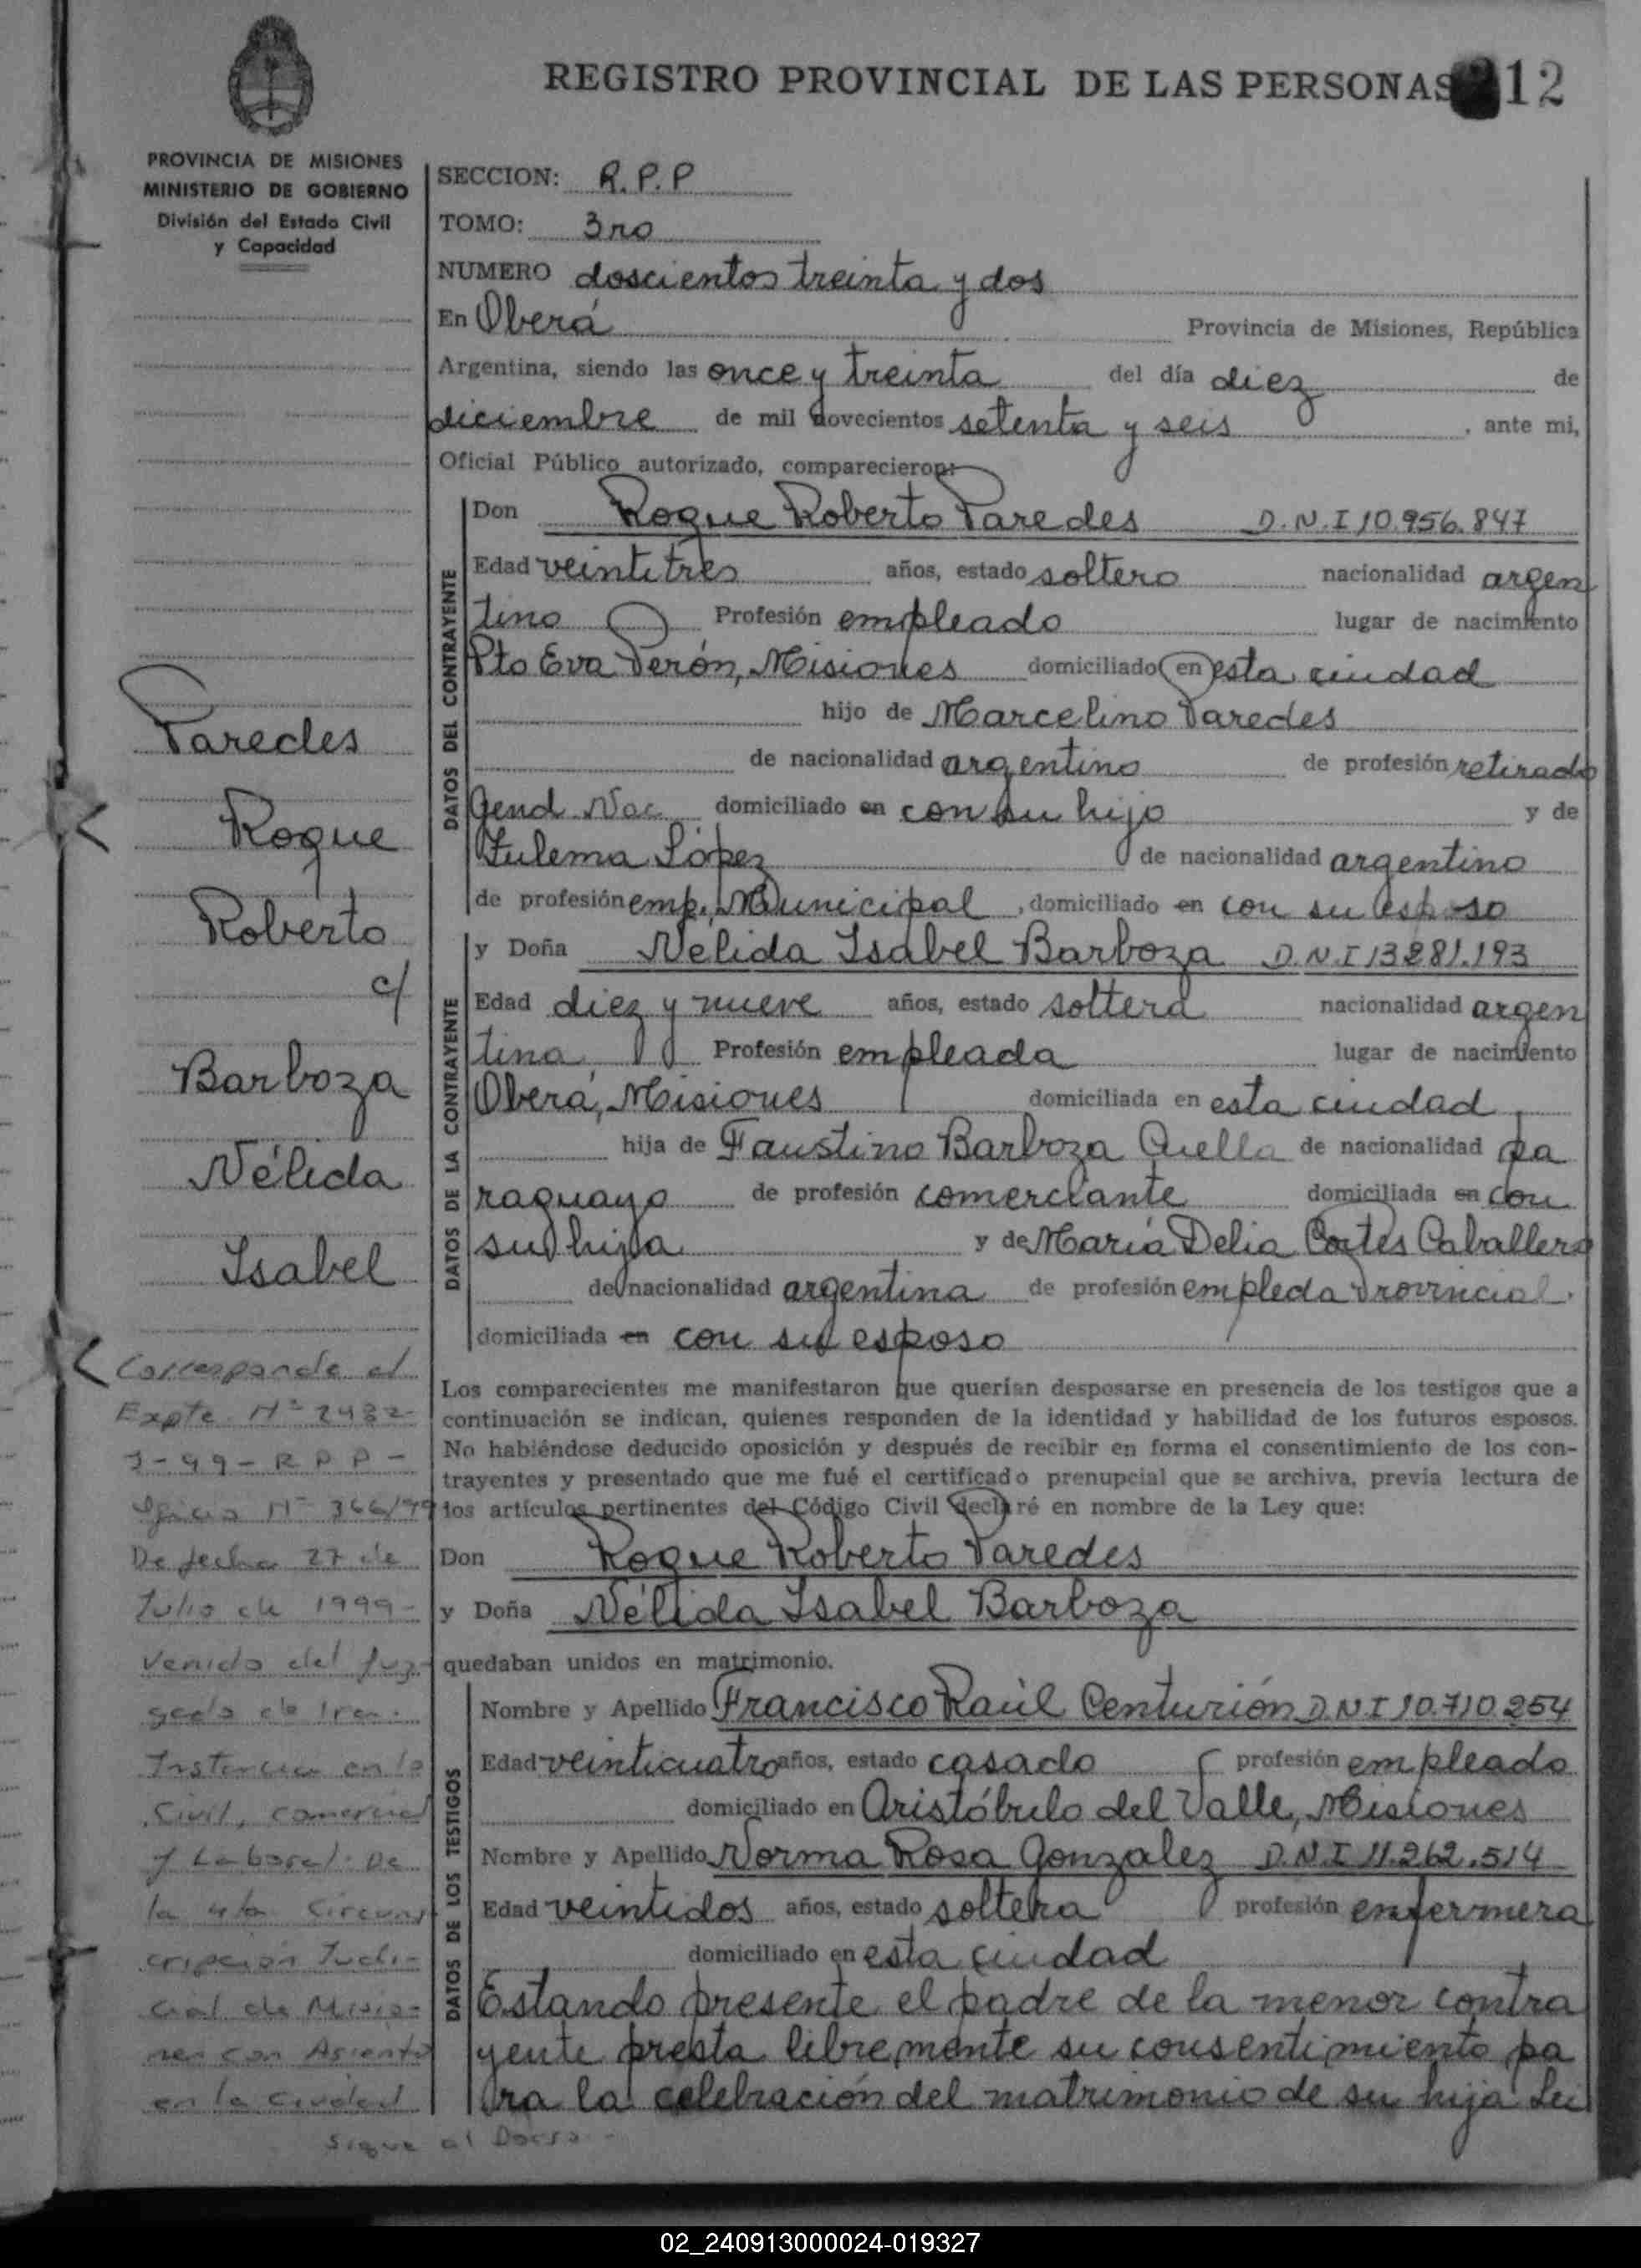 REGISTRO PROVINCIAL DE LAS PERSONAS 12
PROVINCIA DE MISIONES
MINISTERIO DE GOBIERNO
División del Estado Civil
y Capacidad
SECCION: R.P.P
TOMO: 3ro
NUMERO doscientos treinta y dos
En Oberá Provincia de Misiones, República
Argentina, siendo las once y treinta del día diez de
diciembre de mil novecientos setenta y seis, ante mi,
Oficial Público autorizado, comparecieron:
DATOS DEL CONTRAYENTE
Don Roque Roberto Paredes D.N.I 10.956.847
Edad veintitres años, estado soltero nacionalidad argen
tino Profesión empleado lugar de nacimiento
Pto Eva Perón, Misiones domiciliado en esta ciudad
hijo de Marcelino Paredes
de nacionalidad argentino de profesión retirado
Gend. Nac domiciliado en con su hijo y de
Zulema López de nacionalidad argentino
de profesión emp. Municipal, domiciliado en con su esposo
DATOS DE LA CONTRAYENTE
y Doña Nélida Isabel Barboza D.N.I 13281.193
Edad diez y nueve años, estado soltera nacionalidad argen
tina Profesión empleada lugar de nacimiento
Oberá, Misiones domiciliada en esta ciudad
hija de Faustino Barboza de nacionalidad pa
raguayo de profesión comerciante domiciliada en con
su hija y de María Delia Cortes Caballero
de nacionalidad argentina de profesión empleda Provincial.
domiciliada en con su esposo
Los comparecientes me manifestaron que querían desposarse en presencia de los testigos que a
continuación se indican, quienes responden de la identidad y habilidad de los futuros esposos.
No habiéndose deducido oposición y después de recibir en forma el consentimiento de los con-
trayentes y presentado que me fué el certificado prenupcial que se archiva, previa lectura de
los artículos pertinentes del Código Civil declaré en nombre de la Ley que:
Don Roque Roberto Paredes
y Doña Nélida Isabel Barboza
quedaban unidos en matrimonio.
DATOS DE LOS TESTIGOS
Nombre y Apellido Francisco Raúl Centurión D.N.I 10.710.254
Edad veinticuatro años, estado casado profesión empleado
domiciliado en Aristóbulo del Valle, Misiones
Nombre y Apellido Norma Rosa Gonzalez D.N.I 11.262.514
Edad veintidos años, estado soltera profesión enfermera
domiciliado en esta ciudad
Estando presente el padre de la menor contra
yente presta libremente su consentimiento pa
ra la celebración del matrimonio de su hija. Lei
Paredes
Roque
Roberto
c/
Barboza
Nélida
Isabel
Corresponde al
Expte. Nº 2482-
J-99-R P P-
Oficio Nº 366/99
De fecha 27 de
Julio de 1999-
Venido del Juz-
gado de
Instancia en lo
Civil, Comercial
y Laboral De
la 4ta Circuns
cripción Judi-
cial de Misio-
nes con Asiento
en la Ciudad
Sigue al Dorso-
02_240913000024-019327